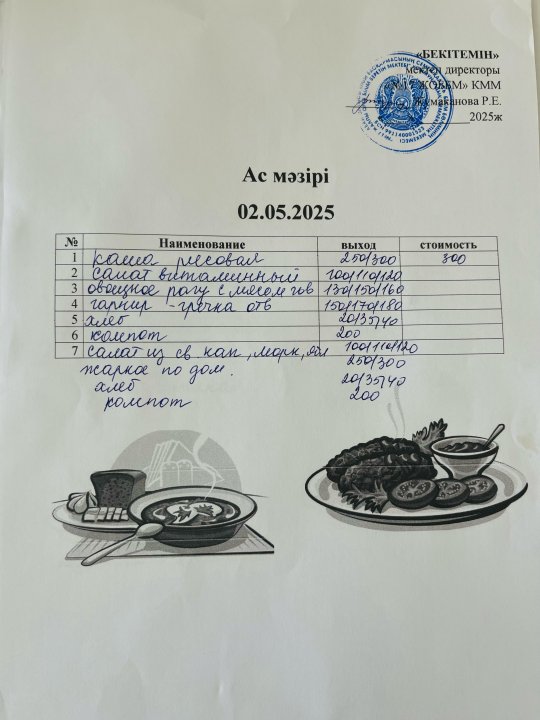 «БЕКІТЕМІН»
мектеп директоры
«№17 ЖОББМ» КММ
Жумаканова Р.Е.
2025ж
Ас мәзірі
02.05.2025
№ Наименование выход стоимость
1 каша рисовая 250/300 300
2 салат витаминный 100/110/120
3 овощное рагу с мясом гов 130/150/160
4 гарнир - гречка отв 150/170/180
5 хлеб 20/35/40
6 компот 200
7 салат из св. кап, морк, ябл 100/110/120
жаркое по дом. 250/300
хлеб 20/35/40
компот 200